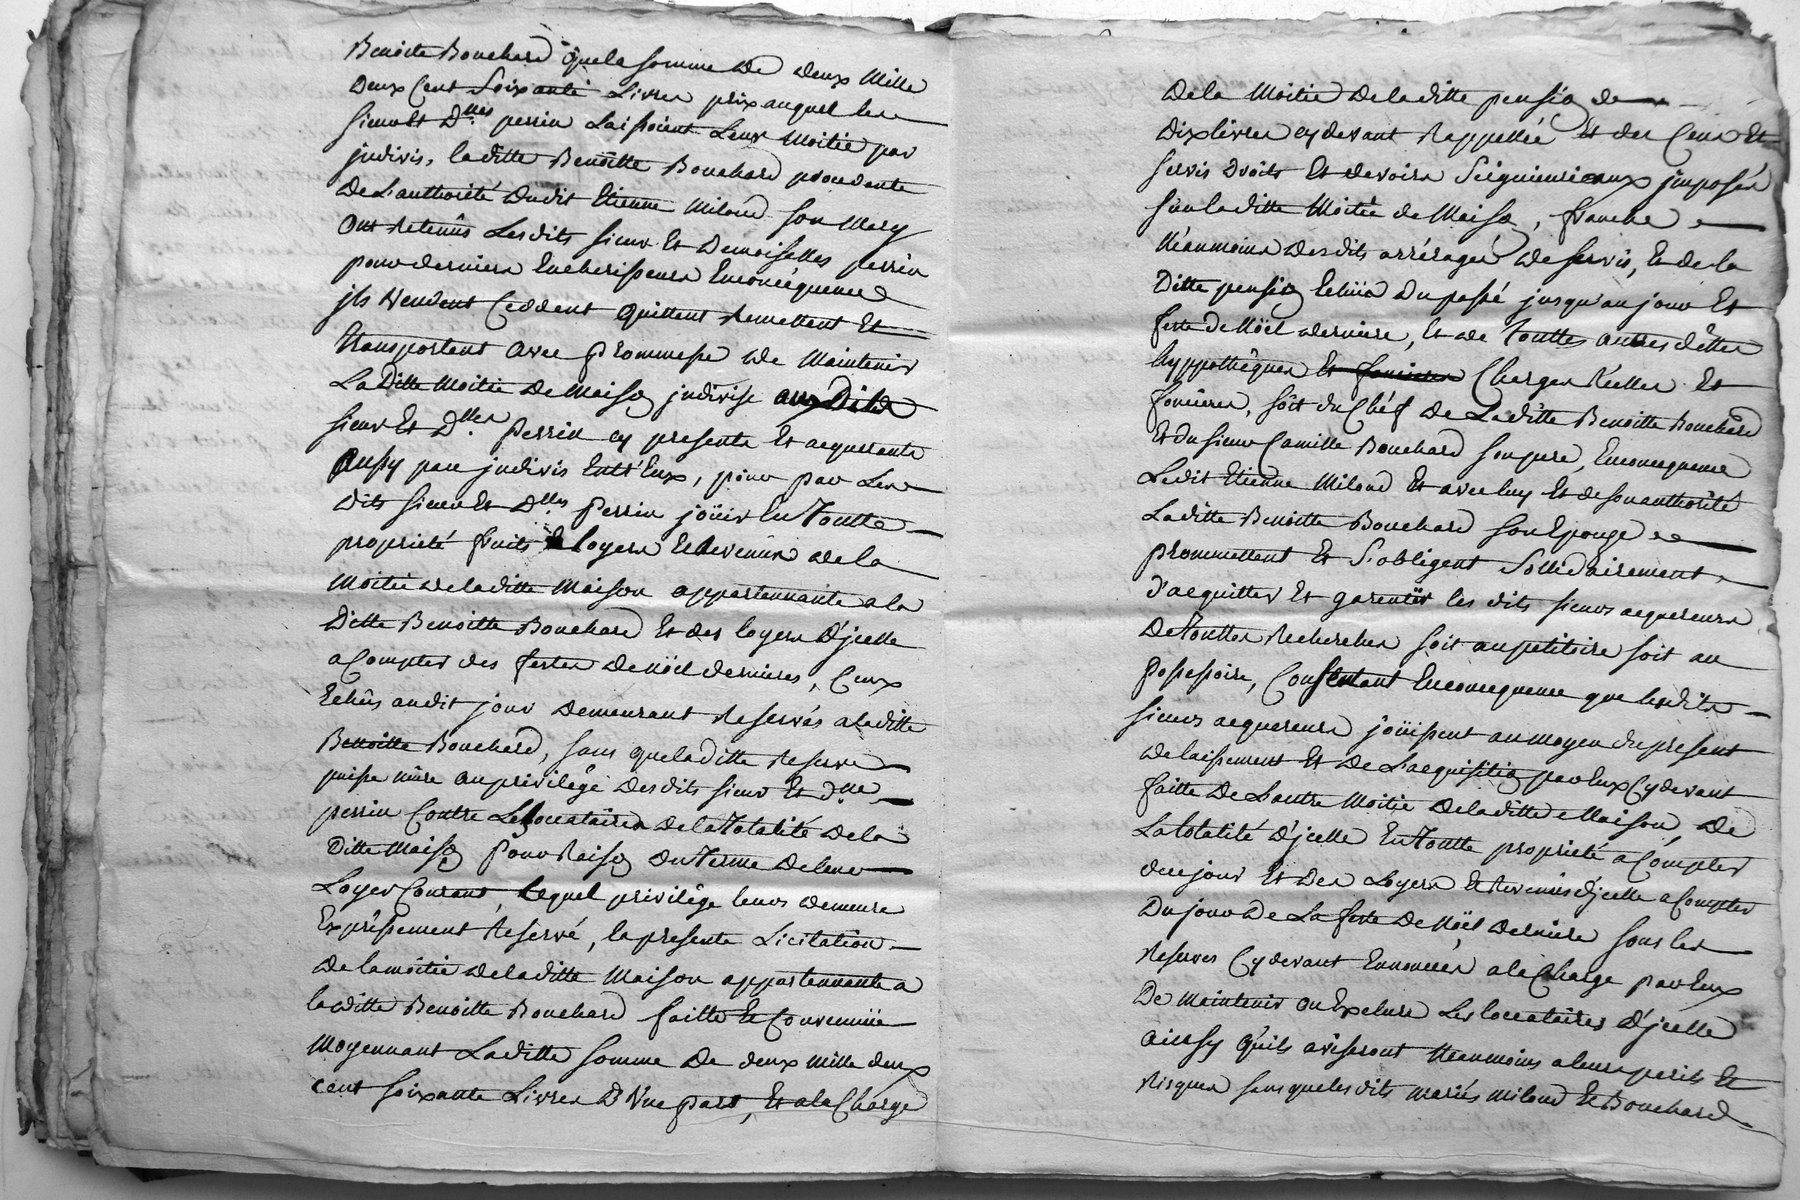 Benoite Bouchard que la somme de deux mille
deux Cent Soixante Livres prix auquel les
sieur Et D.nes perrin Laissoient Leur Moitié par
jndivis, laditte Benoitte Bouchard procedante
de L'authorité Dudit Etienne Miloud son Mary
ont Retenûs Lesdits sieur Et Demoiselles perrin
pour derniers Encherisseurs Enconcéquence
jls Vendent Ceddent quittent Remettent Et
transportent avec prommesse de Maintenir
La Ditte Moitié De Maison jndivise aux Dits
sieur Et D.lles Perrin cy presents Et acquerants
aussy par jndivis Entr'Eux, pour par Les
dits sieur Et D.lles Perrin joüir En Toutte
proprieté fruits loyers Et Revenûs de la
Moitié de laditte Maison appartennante a la
Ditte Benoitte Bouchard Et des loyers D'jcelle
a Compter des festes De Nöel dernieres, Ceux
Echûs audit jour Demeurant Reservés a laditte
Benoitte Bouchard, sans que laditte Reserve
puisse nuire au privilége desdits sieur Et d.lle
perrin Contre Les locataires de la Totalité De la
Ditte Maison pour Raison du Terme De leur
Loyer Courant, lequel privilége leurs demeure
Expréssement Reservé, la presente Licitation
De la moitié de laditte Maison appartennante a
laditte Benoitte Bouchard faitte Et Convenuüe
Moyennant Laditte somme De deux mille deux
cent soixante Livres D'Une part, Et a la Charge
De la Moitié De laditte pension de
Dix livres cy devant Rappellée Et des Cens Et
servis Droits Et devoirs Seigneuriaux jmposés
sur laditte Moitié de Maison, franche
Néanmoins desdits arrérages de servis, Et de la
Ditte pension Echüs Du passé jusqu'au jour Et
feste de Nöel derniere, Et de Touttes autres dêttes
hyppothèques Et foncieres Charges Réelles Et
foncieres, soit du Chéf De Laditte Benoitte Bouchard
Et du sieur Camille Bouchard son pere, Enconcequence
Ledit Etienne Miloud Et avec luy Et de son authorité
Laditte Benoitte Bouchard son Epouze
prommettent Et S'obligent Sollidairement
d'acquitter Et garentir les dits sieurs acquereurs
De Touttes Recherches soit au petitoire soit au
possessoire, Consentant Enconcequence que lesdits
sieurs acquereurs joüissent au moyen du present
délaissement Et De L'acquisition par Eux Cy devant
faitte De L'autre Moitié De laditte Maison, De
La totalité D'jcelle En Toutte proprieté a Compter
de ce jour Et Des Loyers Et Revenûs d'jcelle a Compter
Du jour De La feste De Nöel Derniere sous les
Reserves Cy devant Ennoncées a la Charge par Eux
De Maintenir ou Exclure Les locataires D'jcelle
ainsy qu'ils aviseront Neanmoins a leurs perils Et
Risques sans que les dits mariés Miloud Et Bouchard